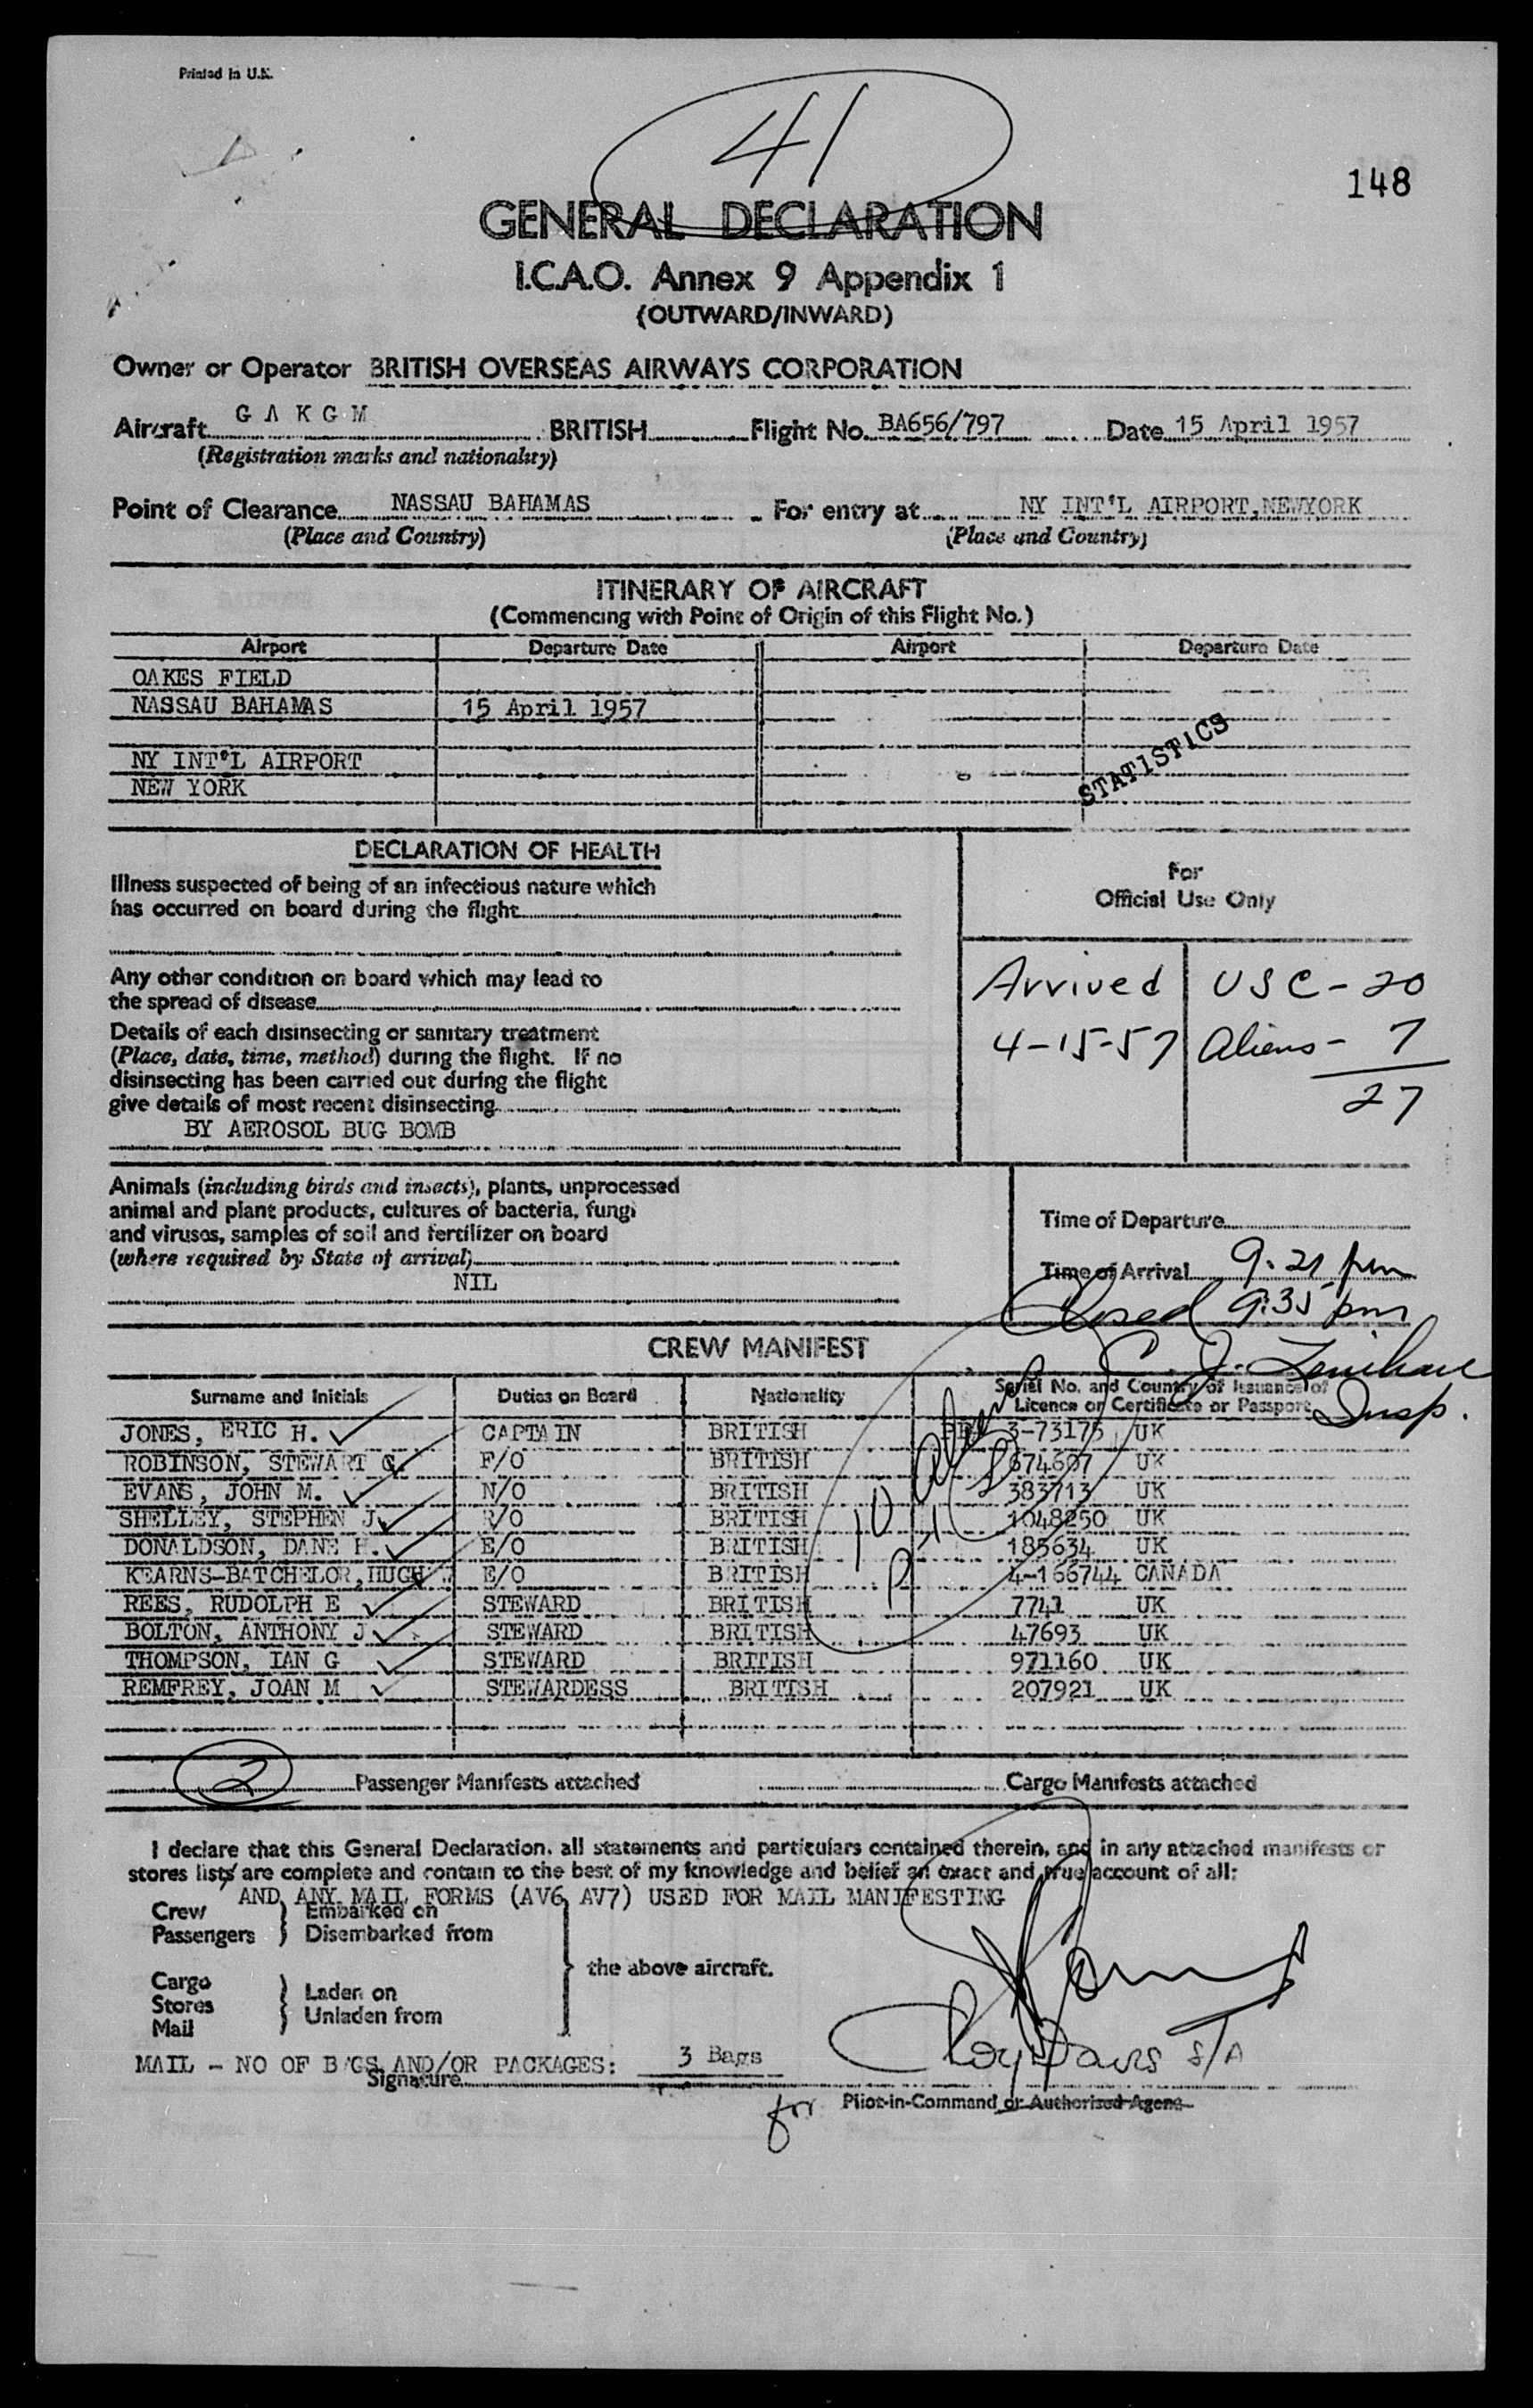 Printed in U.K.
41
148
GENERAL DECLARATION
I.C.A.O. Annex 9 Appendix 1
(OUTWARD/INWARD)
Owner or Operator BRITISH OVERSEAS AIRWAYS CORPORATION
Aircraft G A K G M BRITISH Flight No. BA656/797 Date 15 April 1957
(Registration marks and nationality)
Point of Clearance NASSAU BAHAMAS For entry at NY INT'L AIRPORT, NEWYORK
(Place and Country) (Place and Country)
ITINERARY OF AIRCRAFT
(Commencing with Point of Origin of this Flight No.)
Airport Departure Date Airport Departure Date
OAKES FIELD
NASSAU BAHAMAS 15 April 1957
NY INT'L AIRPORT
NEW YORK
STATISTICS
DECLARATION OF HEALTH
Illness suspected of being of an infectious nature which
has occurred on board during the flight
Any other condition on board which may lead to
the spread of disease
Details of each disinsecting or sanitary treatment
(Place, date, time, method) during the flight. If no
disinsecting has been carried out during the flight
give details of most recent disinsecting
BY AEROSOL BUG BOMB
For
Official Use Only
Arrived USC - 20
4-15-57 Aliens - 7
27
Animals (including birds and insects), plants, unprocessed
animal and plant products, cultures of bacteria, fungi
and viruses, samples of soil and fertilizer on board
(where required by State of arrival)
NIL
Time of Departure
Time of Arrival 9.21 pm
Closed 9:35 pm
C. J. Lenihan
Insp.
CREW MANIFEST
Surname and Initials Duties on Board Nationality Serial No. and Country of Issuance of
Licence or Certificate or Passport
JONES, ERIC H. CAPTAIN BRITISH 3-73175 UK
ROBINSON, STEWART G. F/O BRITISH 674607 UK
EVANS, JOHN M. N/O BRITISH 383713 UK
SHELLEY, STEPHEN J. R/O BRITISH 1048250 UK
DONALDSON, DANE E/O BRITISH 185634 UK
KEARNS-BATCHELOR, HUGH E/O BRITISH 4-166744 CANADA
REES, RUDOLPH E STEWARD BRITISH 7741 UK
BOLTON, ANTHONY J STEWARD BRITISH 47693 UK
THOMPSON, IAN G STEWARD BRITISH 971160 UK
REMFREY, JOAN M STEWARDESS BRITISH 207921 UK
10
2 Passenger Manifests attached Cargo Manifests attached
I declare that this General Declaration, all statements and particulars contained therein, and in any attached manifests or
stores lists are complete and contain to the best of my knowledge and belief an exact and true account of all:
AND ANY MAIL FORMS (AV6, AV7) USED FOR MAIL MANIFESTING
Crew Embarked on
Passengers Disembarked from
the above aircraft.
Cargo Laden on
Stores Unladen from
Mail
MAIL - NO OF BAGS AND/OR PACKAGES: 3 Bags
Signature
Roy Davis S/A
for Pilot-in-Command or Authorised Agent